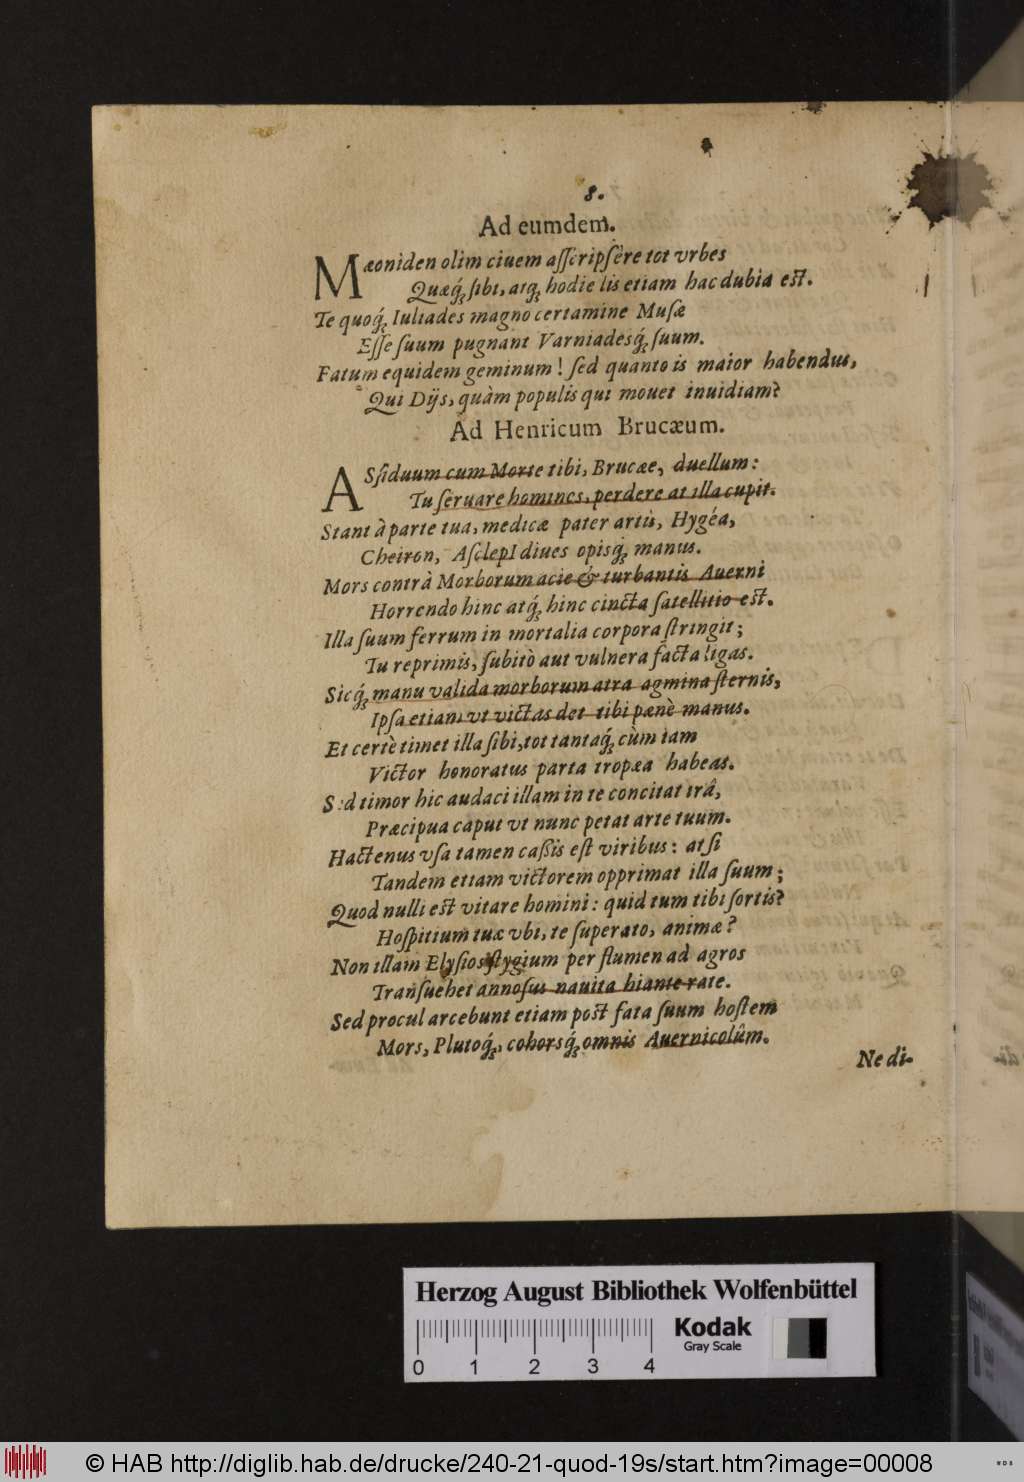 8.
Ad eumdem.
Mæoniden olim ciuem asscripsêre tot vrbes
Quæq́; sibi, atq́; hodie lis etiam hac dubia est.
Te quoq́; Iuliades magno certamine Musæ
Esse suum pugnant Varniadesq́; suum.
Fatum equidem geminum! sed quanto is maior habendus,
Qui Dijs, quàm populis qui mouet inuidiam?
Ad Henricum Brucæum.
ASsiduum cum Morte tibi, Brucæe, duellum:
Tu seruare homines, perdere at illa cupit.
Stant à parte tua, medicæ pater artis, Hygéa,
Cheiron, AsclepI diues opisq́; manus.
Mors contrà Morborum acie & turbantis Auerni
Horrendo hinc atq́; hinc cincta satellitio est.
Illa suum ferrum in mortalia corpora stringit;
Tu reprimis, subitò aut vulnera facta ligas.
Sicq́; manu valida morborum atra agmina sternis,
Ipsa etiam vt victas det tibi pænè manus.
Et certè timet illa sibi, tot tantaq́; cùm iam
Victor honoratus parta tropæa habeas.
Sed timor hic audaci illam in te concitat irâ,
Præcipua caput vt nunc petat arte tuum.
Hactenus vsa tamen cassis est viribus: at si
Tandem etiam victorem opprimat illa suum;
Quod nulli est vitare homini: quid tum tibi fortis?
Hospitium tuæ vbi, te superato, animæ?
Non illam Elysios stygium per flumen ad agros
Transuehet annosus nauita hiante rate.
Sed procul arcebunt etiam post fata suum hostem
Mors, Plutoq́;, cohorsq́; omnis Auernicolûm.
Ne di-
Herzog August Bibliothek Wolfenbüttel
0 1 2 3 4
Kodak
Gray Scale
© HAB http://diglib.hab.de/drucke/240-21-quod-19s/start.htm?image=00008